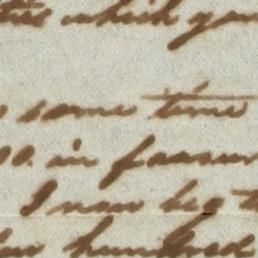 which you
some time
00. in favour
I now beg t
hundred